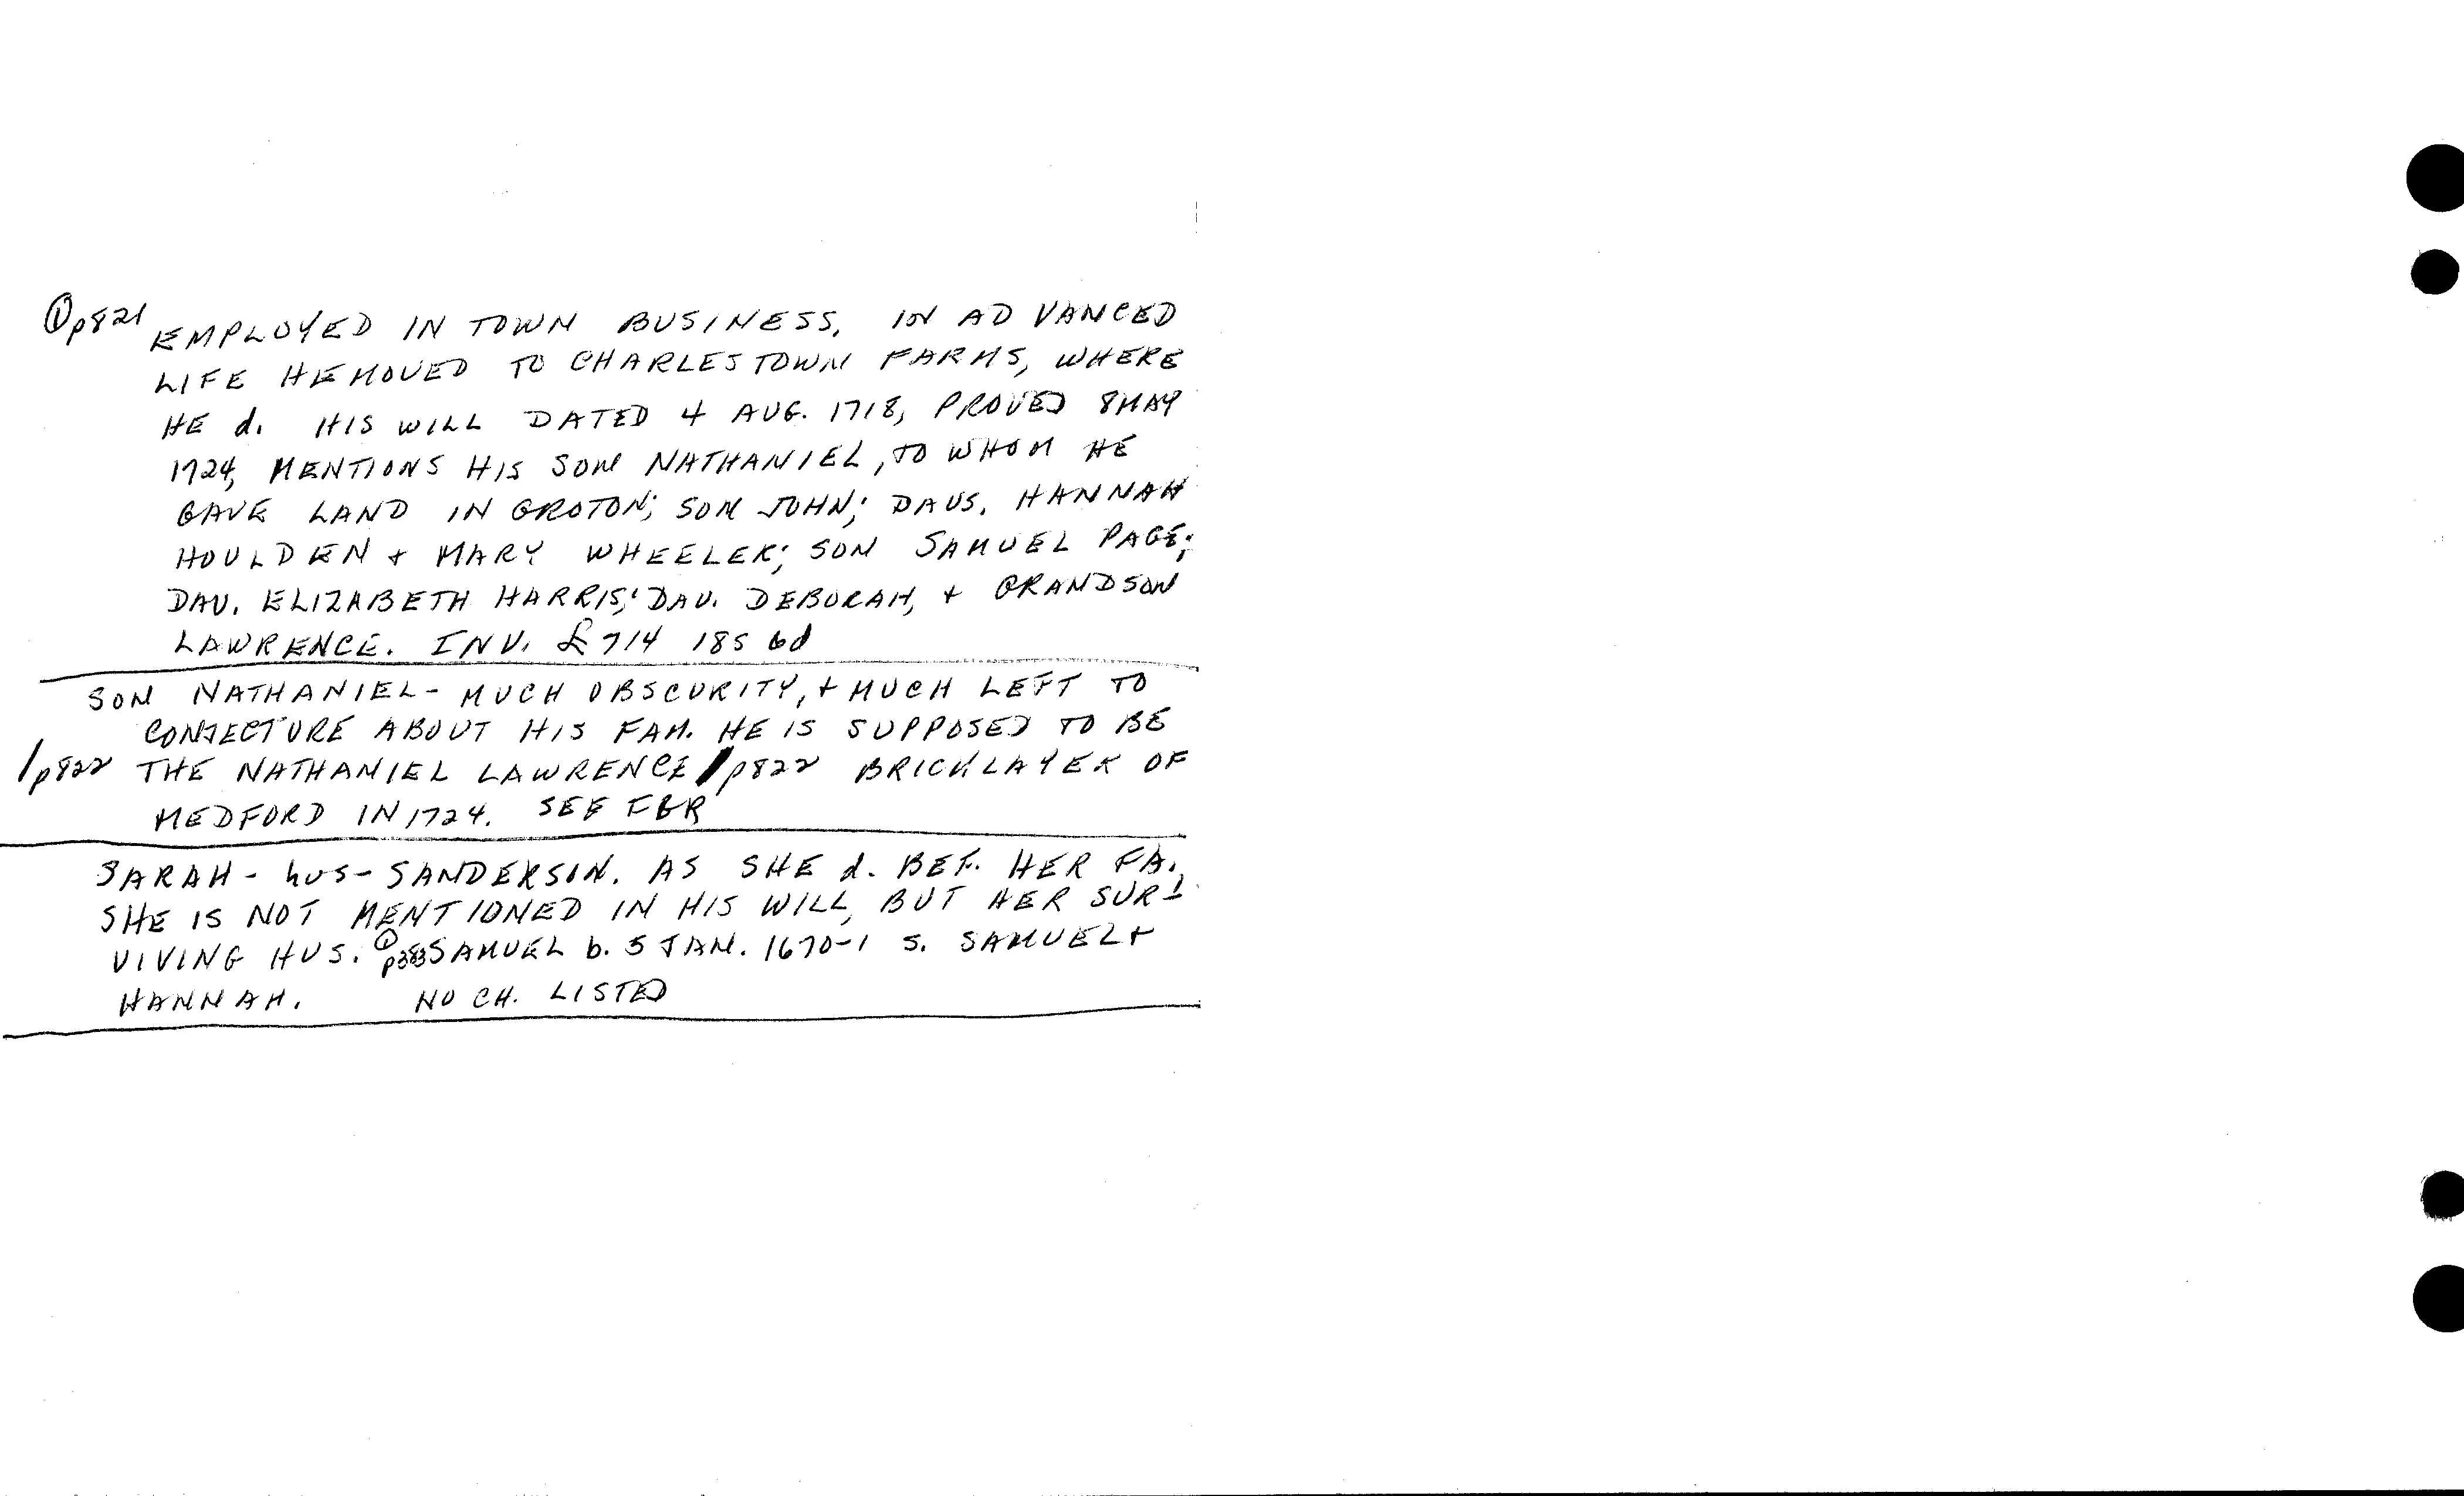 ①p821 EMPLOYED IN TOWN BUSINESS. IN ADVANCED
LIFE HE MOVED TO CHARLESTOWN FARMS, WHERE
HE d. HIS WILL DATED 4 AUG. 1718, PROVED 8 MAY
1724, MENTIONS HIS SON NATHANIEL, TO WHOM HE
GAVE LAND IN GROTON; SON JOHN; DAUS. HANNAH
HOULDEN + MARY WHEELER; SON SAMUEL PAGE;
DAU. ELIZABETH HARRIS; DAU. DEBORAH, + GRANDSON
LAWRENCE. INV. £714 18S 6d
SON NATHANIEL - MUCH OBSCURITY, + MUCH LEFT TO
CONJECTURE ABOUT HIS FAM. HE IS SUPPOSED TO BE
/p822 THE NATHANIEL LAWRENCE /p822 BRICKLAYER OF
MEDFORD IN 1724. SEE FGR
SARAH - hus - SANDERSON. AS SHE d. BEF. HER FA.,
SHE IS NOT MENTIONED IN HIS WILL, BUT HER SUR-
VIVING HUS. ①p383 SAMUEL b. 5 JAN. 1670-1 S. SAMUEL +
HANNAH. NO CH. LISTED